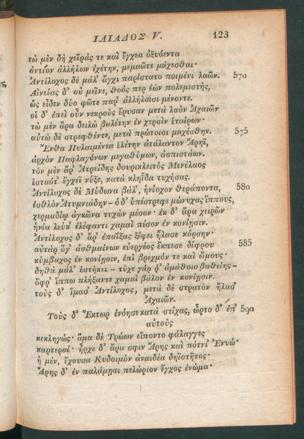 ΙΛΙΑΔΟΣ V. 123
τὼ μὲν δὴ χεῖράς τε καὶ ἔγχεα ὀξυόεντα
ἀντίον ἀλλήλων ἐχέτην, μεμαῶτε μάχεσθαι·
Ἀντίλοχος δὲ μάλ' ἄγχι παρίστατο ποιμένι λαῶν. 570
Αἰνείας δ' οὐ μεῖνε, θοός περ ἐὼν πολεμιστής,
ὡς εἶδεν δύο φῶτε παρ' ἀλλήλοισι μένοντε.
οἱ δ' ἐπεὶ οὖν νεκροὺς ἔρυσαν μετὰ λαὸν Ἀχαιῶν
τὼ μὲν ἄρα δειλὼ βαλέτην ἐν χερσὶν ἑταίρων·
αὐτὼ δὲ στρεφθέντε, μετὰ πρώτοισι μαχέσθην. 575
Ἔνθα Πυλαιμένεα ἑλέτην ἀτάλαντον Ἄρηϊ,
ἀρχὸν Παφλαγόνων μεγαθύμων, ἀσπιστάων.
τὸν μὲν ἄρ' Ἀτρείδης δουρικλειτὸς Μενέλαος
ἑσταότ' ἔγχεϊ νύξε, κατὰ κληῖδα τυχήσας.
Ἀντίλοχος δὲ Μύδωνα βάλ', ἡνίοχον θεράποντα, 580
ἐσθλὸν Ἀτυμνιάδην— ὁ δ' ὑπέστρεφε μώνυχας ἵππους,
χερμαδίῳ ἀγκῶνα τυχὼν μέσον· ἐκ δ' ἄρα χειρῶν
ἡνία λεύκ' ἐλέφαντι χαμαὶ πέσον ἐν κονίῃσιν.
Ἀντίλοχος δ' ἄρ' ἐπαΐξας ξίφει ἤλασε κόρσην·
αὐτὰρ ὅγ' ἀσθμαίνων εὐεργέος ἔκπεσε δίφρου 585
κύμβαχος ἐν κονίῃσιν, ἐπὶ βρεχμόν τε καὶ ὤμους·
δηθὰ μάλ' ἑστήκει — τύχε γάρ ῥ' ἀμάθοιο βαθείης —
ὄφρ' ἵππω πλήξαντε χαμαὶ βάλον ἐν κονίῃσιν.
τοὺς δ' ἵμασ' Ἀντίλοχος, μετὰ δὲ στρατὸν ἤλασ'
Ἀχαιῶν.
Τοὺς δ' Ἕκτωρ ἐνόησε κατὰ στίχας, ὦρτο δ' ἐπ' 590
αὐτοὺς
κεκληγώς· ἅμα δὲ Τρώων εἵποντο φάλαγγες
καρτεραί· ἦρχε δ' ἄρα σφιν Ἄρης καὶ πότνι' Ἐνυώ·
ἡ μὲν, ἔχουσα Κυδοιμὸν ἀναιδέα δηϊοτῆτος·
Ἄρης δ' ἐν παλάμῃσι πελώριον ἔγχος ἐνώμα·